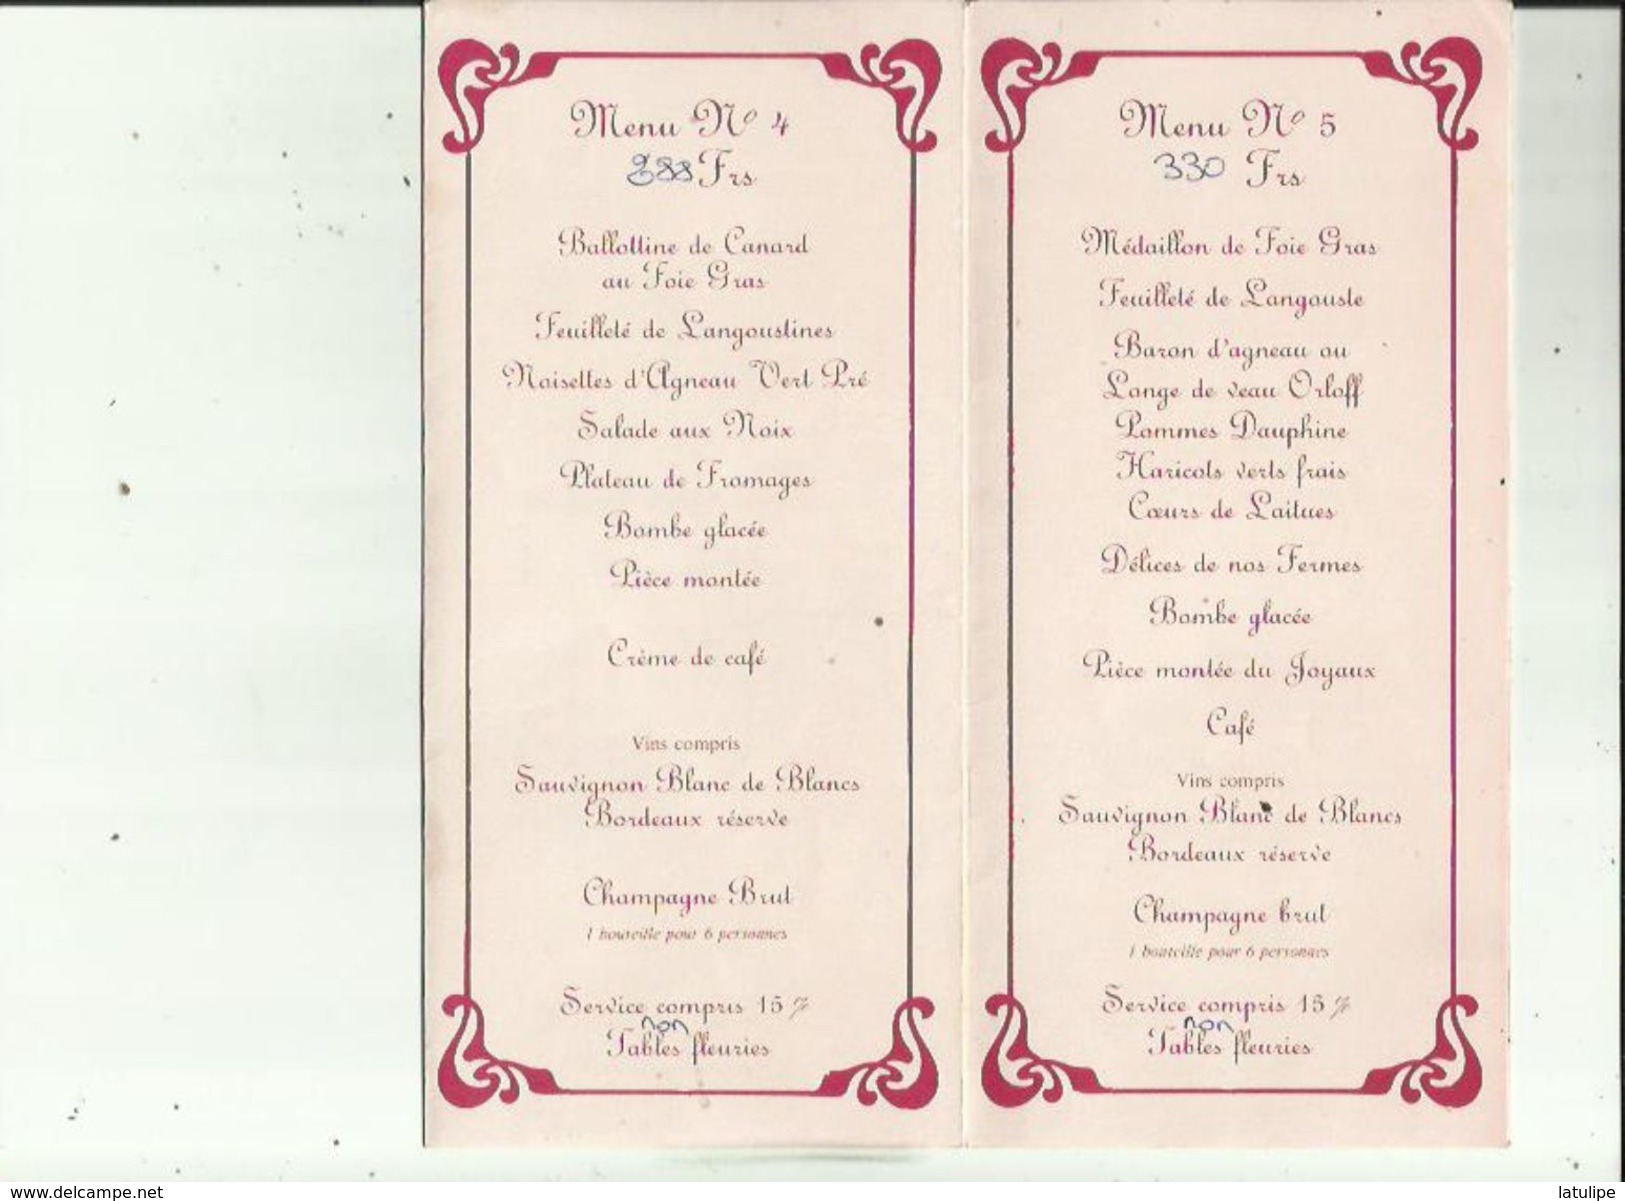 Menu Nº 4
288 Frs
Ballottine de Canard
au Foie Gras
Feuilleté de Langoustines
Noisettes d'Agneau Vert Pré
Salade aux Noix
Plateau de Fromages
Bombe glacée
Pièce montée
Crème de café
Vins compris
Sauvignon Blanc de Blancs
Bordeaux réserve
Champagne Brut
1 bouteille pour 6 personnes
Service compris 15 %
non
Tables fleuries
Menu Nº 5
330 Frs
Médaillon de Foie Gras
Feuilleté de Langouste
Baron d'agneau ou
Longe de veau Orloff
Pommes Dauphine
Haricots verts frais
Cœurs de Laitues
Délices de nos Fermes
Bombe glacée
Pièce montée du Joyaux
Café
Vins compris
Sauvignon Blanc de Blancs
Bordeaux réserve
Champagne brut
1 bouteille pour 6 personnes
Service compris 15 %
non
Tables fleuries
www.delcampe.net
latulipe